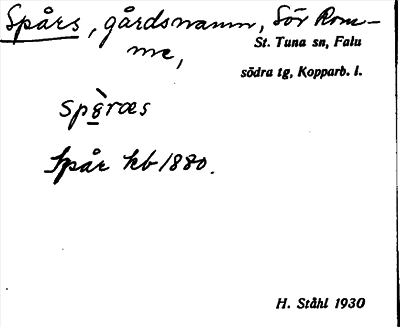 Spårs, gårdsnamn, Sör Rom-
me,
St. Tuna sn, Falu
södra tg, Kopparb. l.
Spår kb 1880.
H. Ståhl 1930